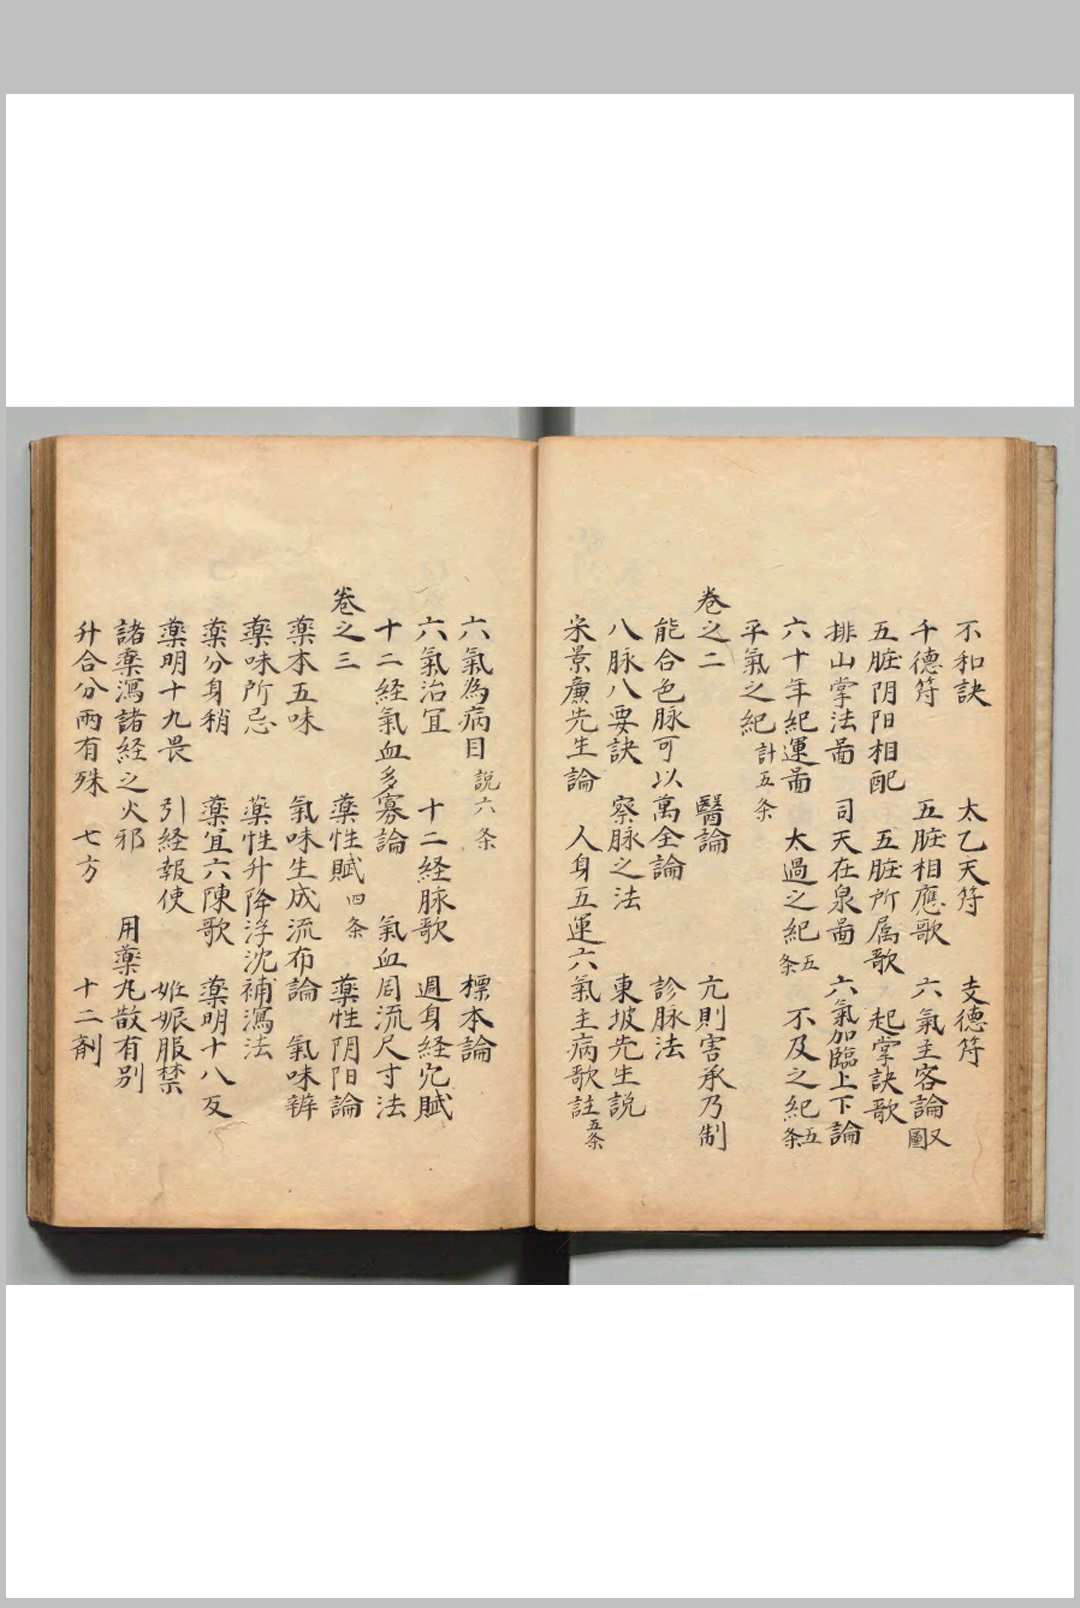 不和訣　太乙天符　支德符
千德符　五脏相應歌　六氣主客論 又圖
五脏阴阳相配　五脏所属歌　起掌訣歌
排山掌法啚　司天在泉啚　六氣加臨上下論
六十年紀運啚　太過之紀 五条　不及之紀 五条
平氣之紀 計五条
卷之二　醫論　亢則害承乃制
能合色脉可以萬全論　診脉法
八脉八要訣　察脉之法　東坡先生説
宋景㢘先生論　人身五運六氣主病歌註 五条
六氣為病目 説六条　標本論
六氣治宜　十二経脉歌　週身経穴賦
十二経氣血多寡論　氣血周流尺寸法
卷之三　薬性賦 四条　薬性阴阳論
薬本五味　氣味生成流布論　氣味辨
薬味所忌　薬性升降浮沈補瀉法
薬分身稍　薬宜六陳歌　薬明十八反
薬明十九畏　引経報使　姙娠服禁
諸薬瀉諸経之火邪　用薬丸散有别
升合分兩有殊　七方　十二劑